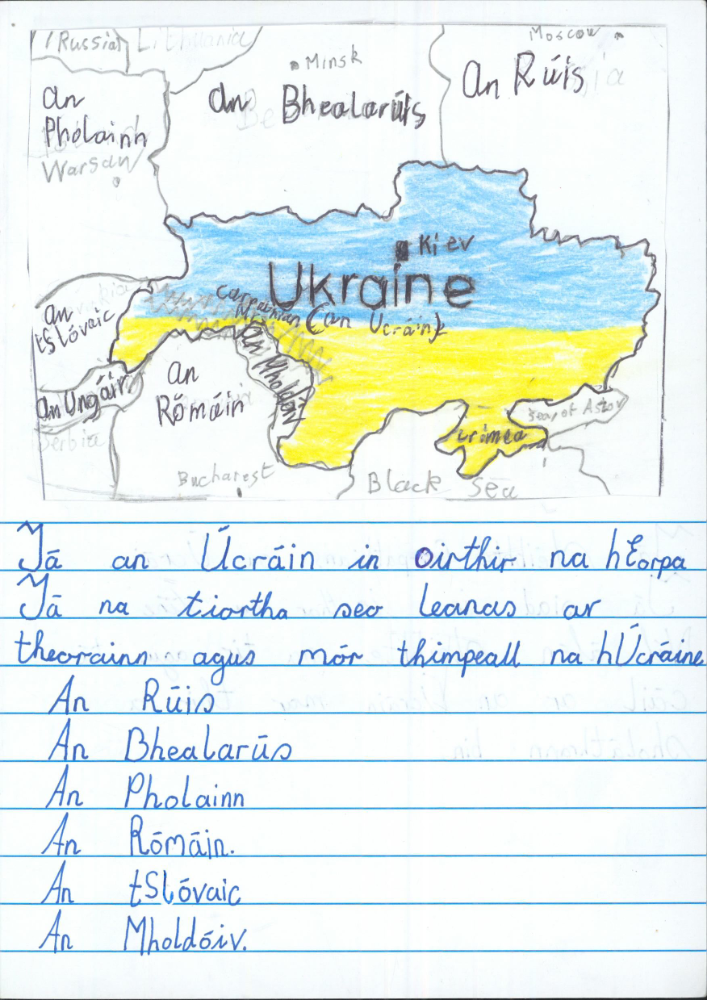 (Russia) Lithuania
Moscow
Minsk
An Rúis
an Bhealarúis
an
Pholainn
Warsaw
Kiev
Ukraine
Carpathian
(an Ucráin)
an
tSlóvaic
an Mholdóiv
an
Rómáin
an Ungáir
Serbia
Sea of Azov
Crimea
Bucharest
Black Sea
Tá an Úcráin in oirthir na hEorpa
Tá na tíortha seo leanas ar
theorainn agus mór thimpeall na hÚcráine
An Rúis
An Bhealarús
An Pholainn
An Rómáin.
An tSlóvaic
An Mholdóiv.